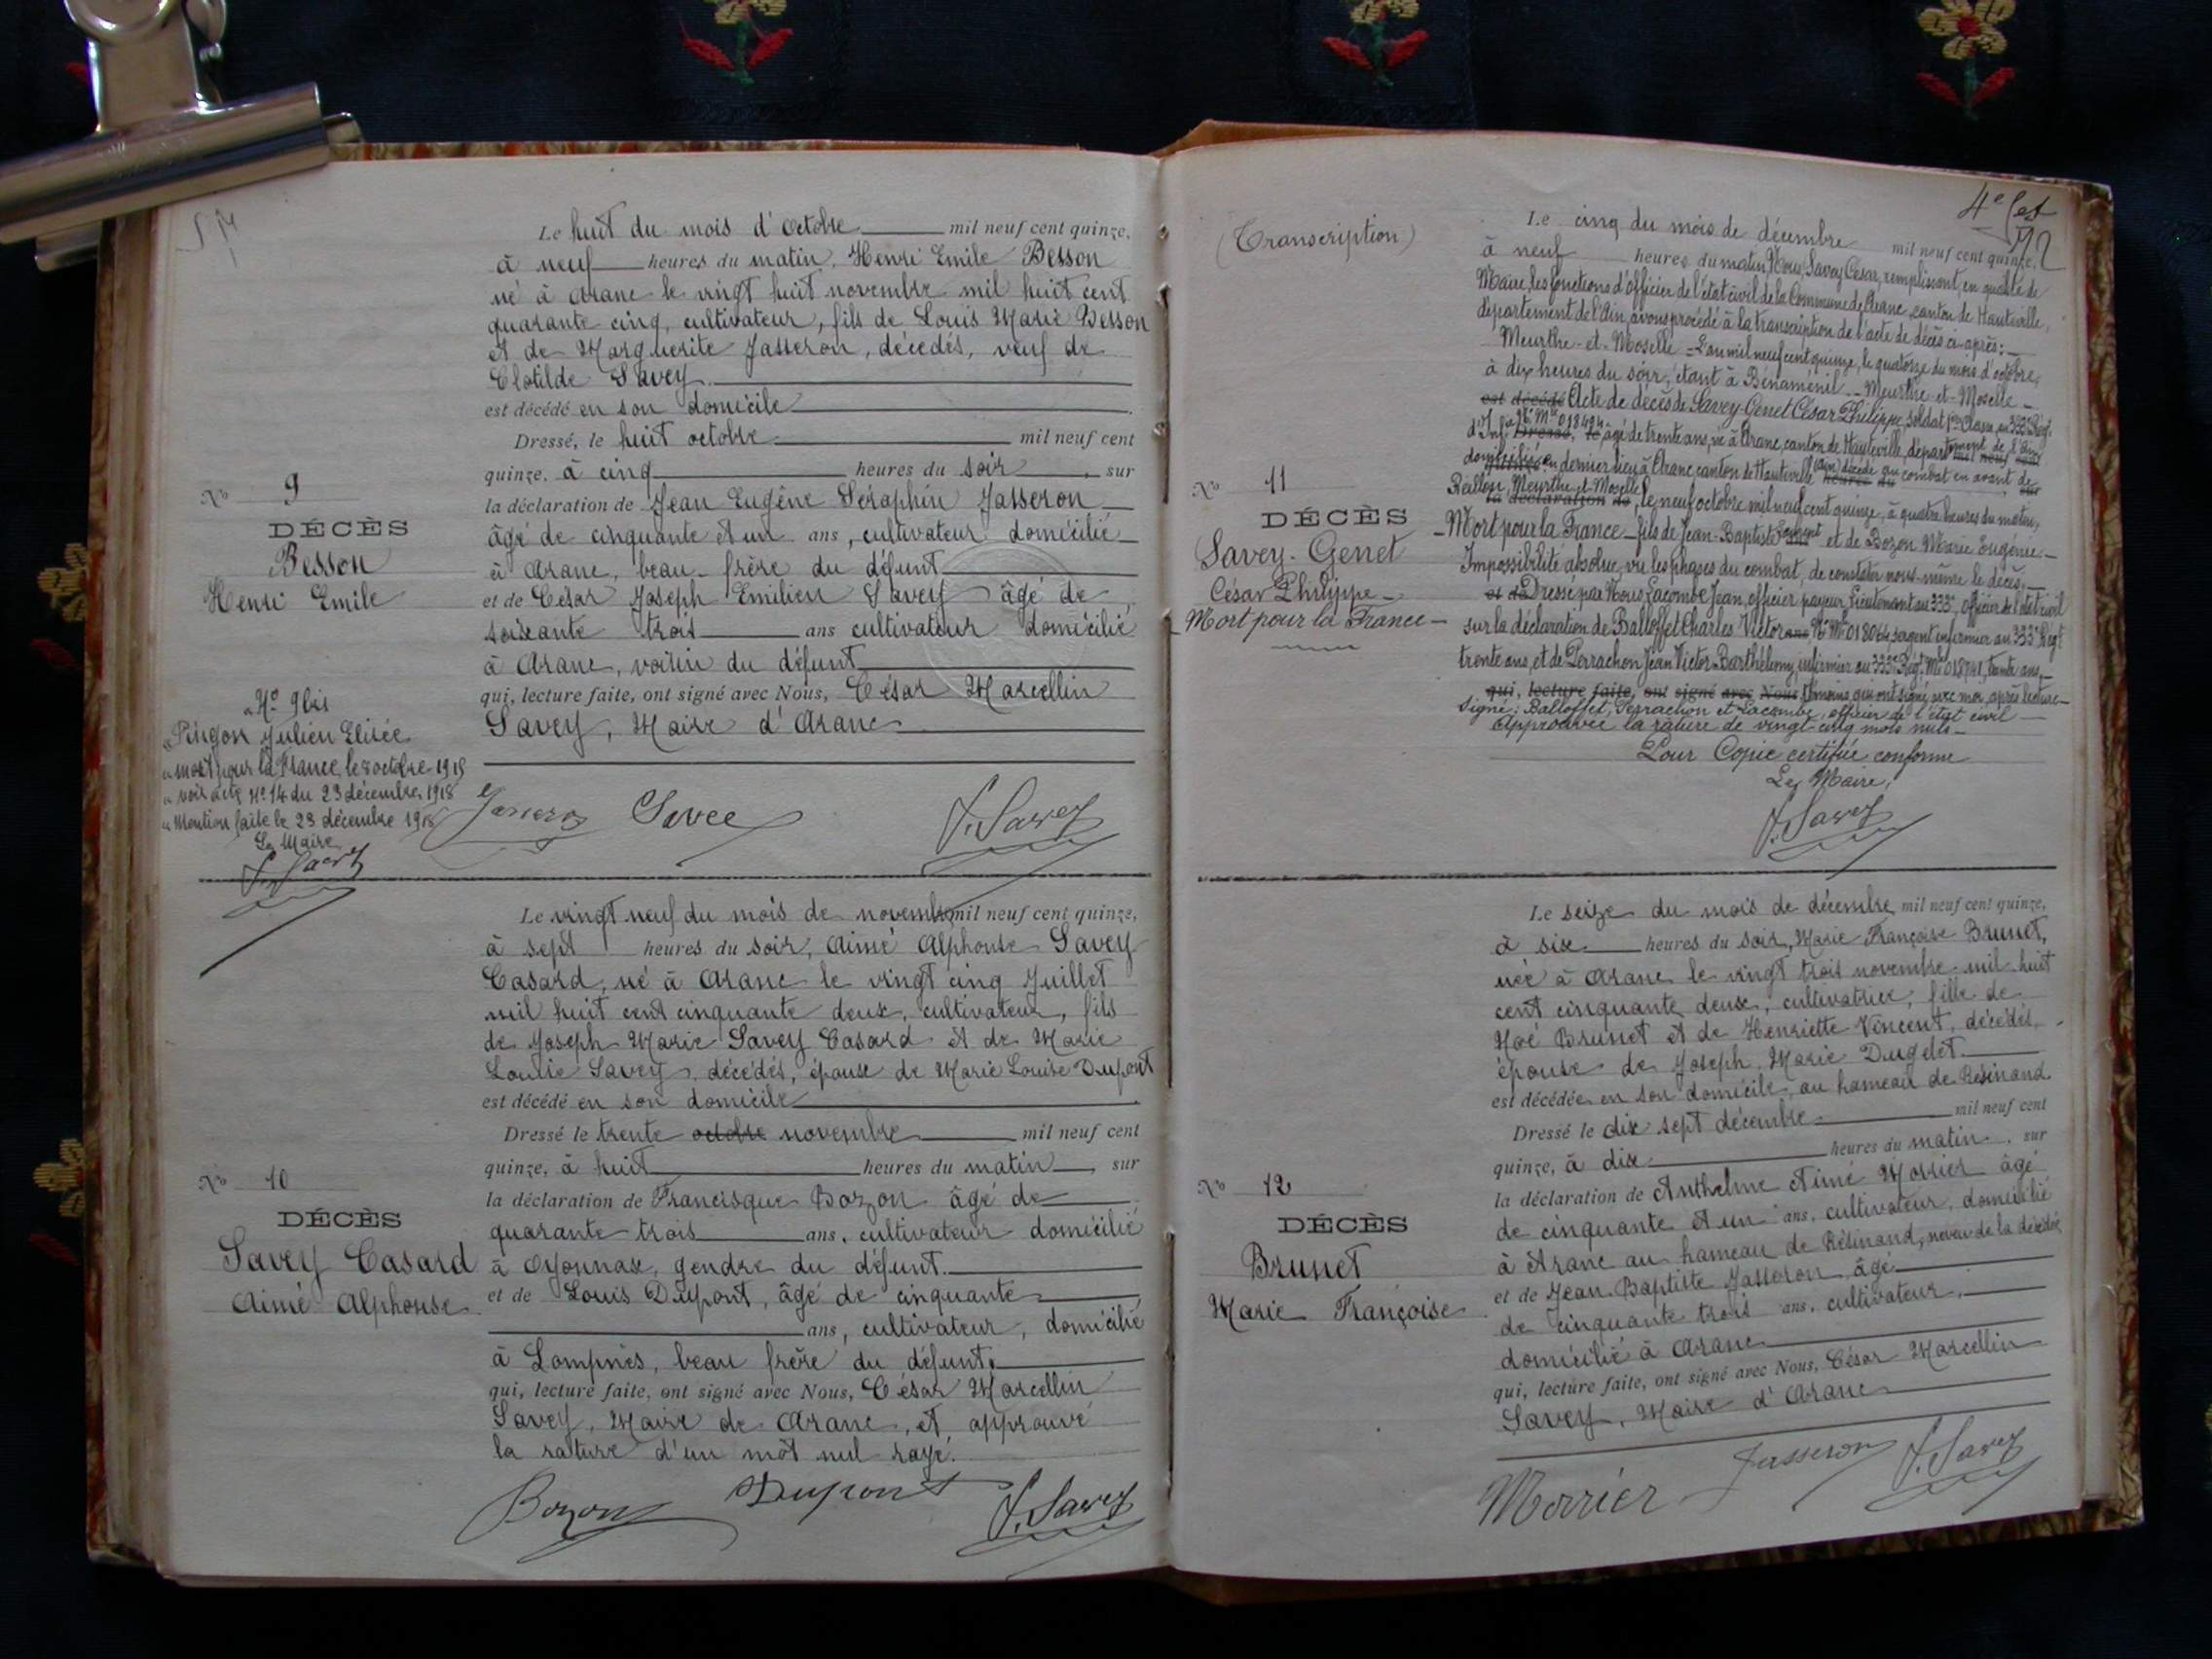 Le huit du mois d'octobre mil neuf cent quinze,
à neuf heures du matin, Henri Emile Besson
né à Aranc le vingt huit novembre mil huit cent
quarante cinq, cultivateur, fils de Louis Marie Besson
et de Marguerite Jasseron, décédés, veuf de
Clotilde Savey
est décédé en son domicile
Dressé, le huit octobre mil neuf cent
quinze, à cinq heures du soir, sur
la déclaration de Jean Eugène Séraphin Jasseron
âgé de cinquante et un ans, cultivateur domicilié
à Aranc, beau-frère du défunt
et de César Joseph Emilien Savey âgé de
soixante trois ans cultivateur domicilié
à Aranc, voisin du défunt
qui, lecture faite, ont signé avec Nous, César Marcellin
Savey, Maire d'Aranc
Jasseron Savee J. Savey
No 9
DÉCÈS
Besson
Henri Emile
No 9bis
Pingon Julien Elisée
mort pour la France, le 8 octobre 1915
voir acte No 14 du 23 décembre 1918
Mention faite le 23 décembre 1918
Le Maire
J. Savey
Le vingt neuf du mois de novembre mil neuf cent quinze,
à sept heures du soir, Aimé Alphonse Savey
Casard, né à Aranc le vingt cinq Juillet
mil huit cent cinquante deux, cultivateur, fils
de Joseph Marie Savey Casard et de Marie
Louise Savey, décédés, époux de Marie Louise Dupont
est décédé en son domicile
Dressé le trente octobre novembre mil neuf cent
quinze, à huit heures du matin, sur
la déclaration de Francisque Bozon âgé de
quarante trois ans, cultivateur domicilié
à Oyonnax, gendre du défunt.
et de Louis Dupont, âgé de cinquante
ans, cultivateur, domicilié
à Lompnès, beau frère du défunt,
qui, lecture faite, ont signé avec Nous, César Marcellin
Savey, Maire de Aranc, et approuvé
la rature d'un mot nul rayé.
Bozon Dupont J. Savey
No 10
DÉCÈS
Savey Casard
Aimé Alphonse
4e fet
(Transcription)
Le cinq du mois de décembre mil neuf cent quinze,
à neuf heures du matin, Nous, Savey César, remplissant, en qualité de
Maire, les fonctions d'officier de l'état civil de la Commune de Aranc, canton de Hauteville,
département de l'Ain, avons procédé à la transcription de l'acte de décès ci-après:
Meurthe-et-Moselle - L'an mil neuf cent quinze, le quatorze du mois d'octobre,
à dix heures du soir, étant à Bénaménil - Meurthe-et-Moselle -
est décédé Acte de décès de Savey-Genet César Philippe, soldat 1re Classe, au 333e Rég.
d'Inf. No Mle 018494 Dressé, le âgé de trente ans, né à Aranc, canton de Hauteville, département de l'Ain mil neuf cent
domicilié en dernier lieu à Aranc, canton de Hauteville (Ain) décédé au combat en avant de
Reillon, Meurthe-et-Moselle, la déclaration de le neuf octobre mil neuf cent quinze, à quatre heures du matin,
- Mort pour la France - fils de Jean-Baptiste et de Bozon Marie Eugénie -
Impossibilité absolue, vu les phases du combat, de constater nous-même le décès.
et de Dressé par Nous Lacombe Jean, officier payeur, Lieutenant au 333e, officier de l'état civil
sur la déclaration de Balloffet Charles Victor ans No Mle 018064 sergent infirmier au 333e Régt
trente ans, et de Perrachon Jean Victor Barthélemy, infirmier au 333e Régt. Mle 018741, trente ans,
qui, lecture faite, ont signé avec Nous témoins, qui ont signé avec moi après lecture -
Signé: Balloffet, Perrachon et Lacombe, officier de l'état civil -
Approuvée la rature de vingt cinq mots nuls -
Pour Copie certifiée conforme
Le Maire,
J. Savey
No 11
DÉCÈS
Savey-Genet
César Philippe
Mort pour la France
Le seize du mois de décembre mil neuf cent quinze,
à six heures du soir, Marie Françoise Brunet,
née à Aranc le vingt trois novembre mil huit
cent cinquante deux, cultivatrice, fille de
Noé Brunet et de Henriette Vincent, décédés,
épouse de Joseph Marie Dugelet.
est décédée en son domicile, au hameau de Résinand.
Dressé le dix sept décembre mil neuf cent
quinze, à dix heures du matin, sur
la déclaration de Anthelme Aimé Morrier âgé
de cinquante et un ans, cultivateur, domicilié
à Aranc au hameau de Résinand, neveu de la décédée
et de Jean-Baptiste Jasseron, âgé
de cinquante trois ans, cultivateur,
domicilié à Aranc
qui, lecture faite, ont signé avec Nous, César Marcellin
Savey, Maire d'Aranc
Morrier Jasseron J. Savey
No 12
DÉCÈS
Brunet
Marie Françoise